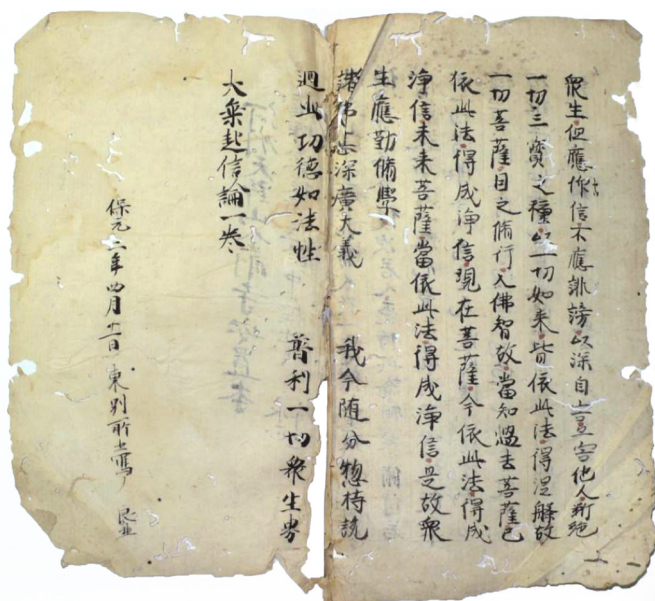 衆生但應作信不應誹謗以深自害他人断絶
一切三寳之種以一切如来皆依此法得涅槃故
一切菩薩因之脩行入佛智故當知過去菩薩已
依此法得成浄信現在菩薩今依此法得成
浄信未来菩薩當依此法得成浄信是故衆
生應勤脩學
諸佛甚深廣大義 我今随分惣持說
迴此功徳如法性 普利一切衆生界
大乗起信論一巻
保元二年四月十一日 東別所書寫了